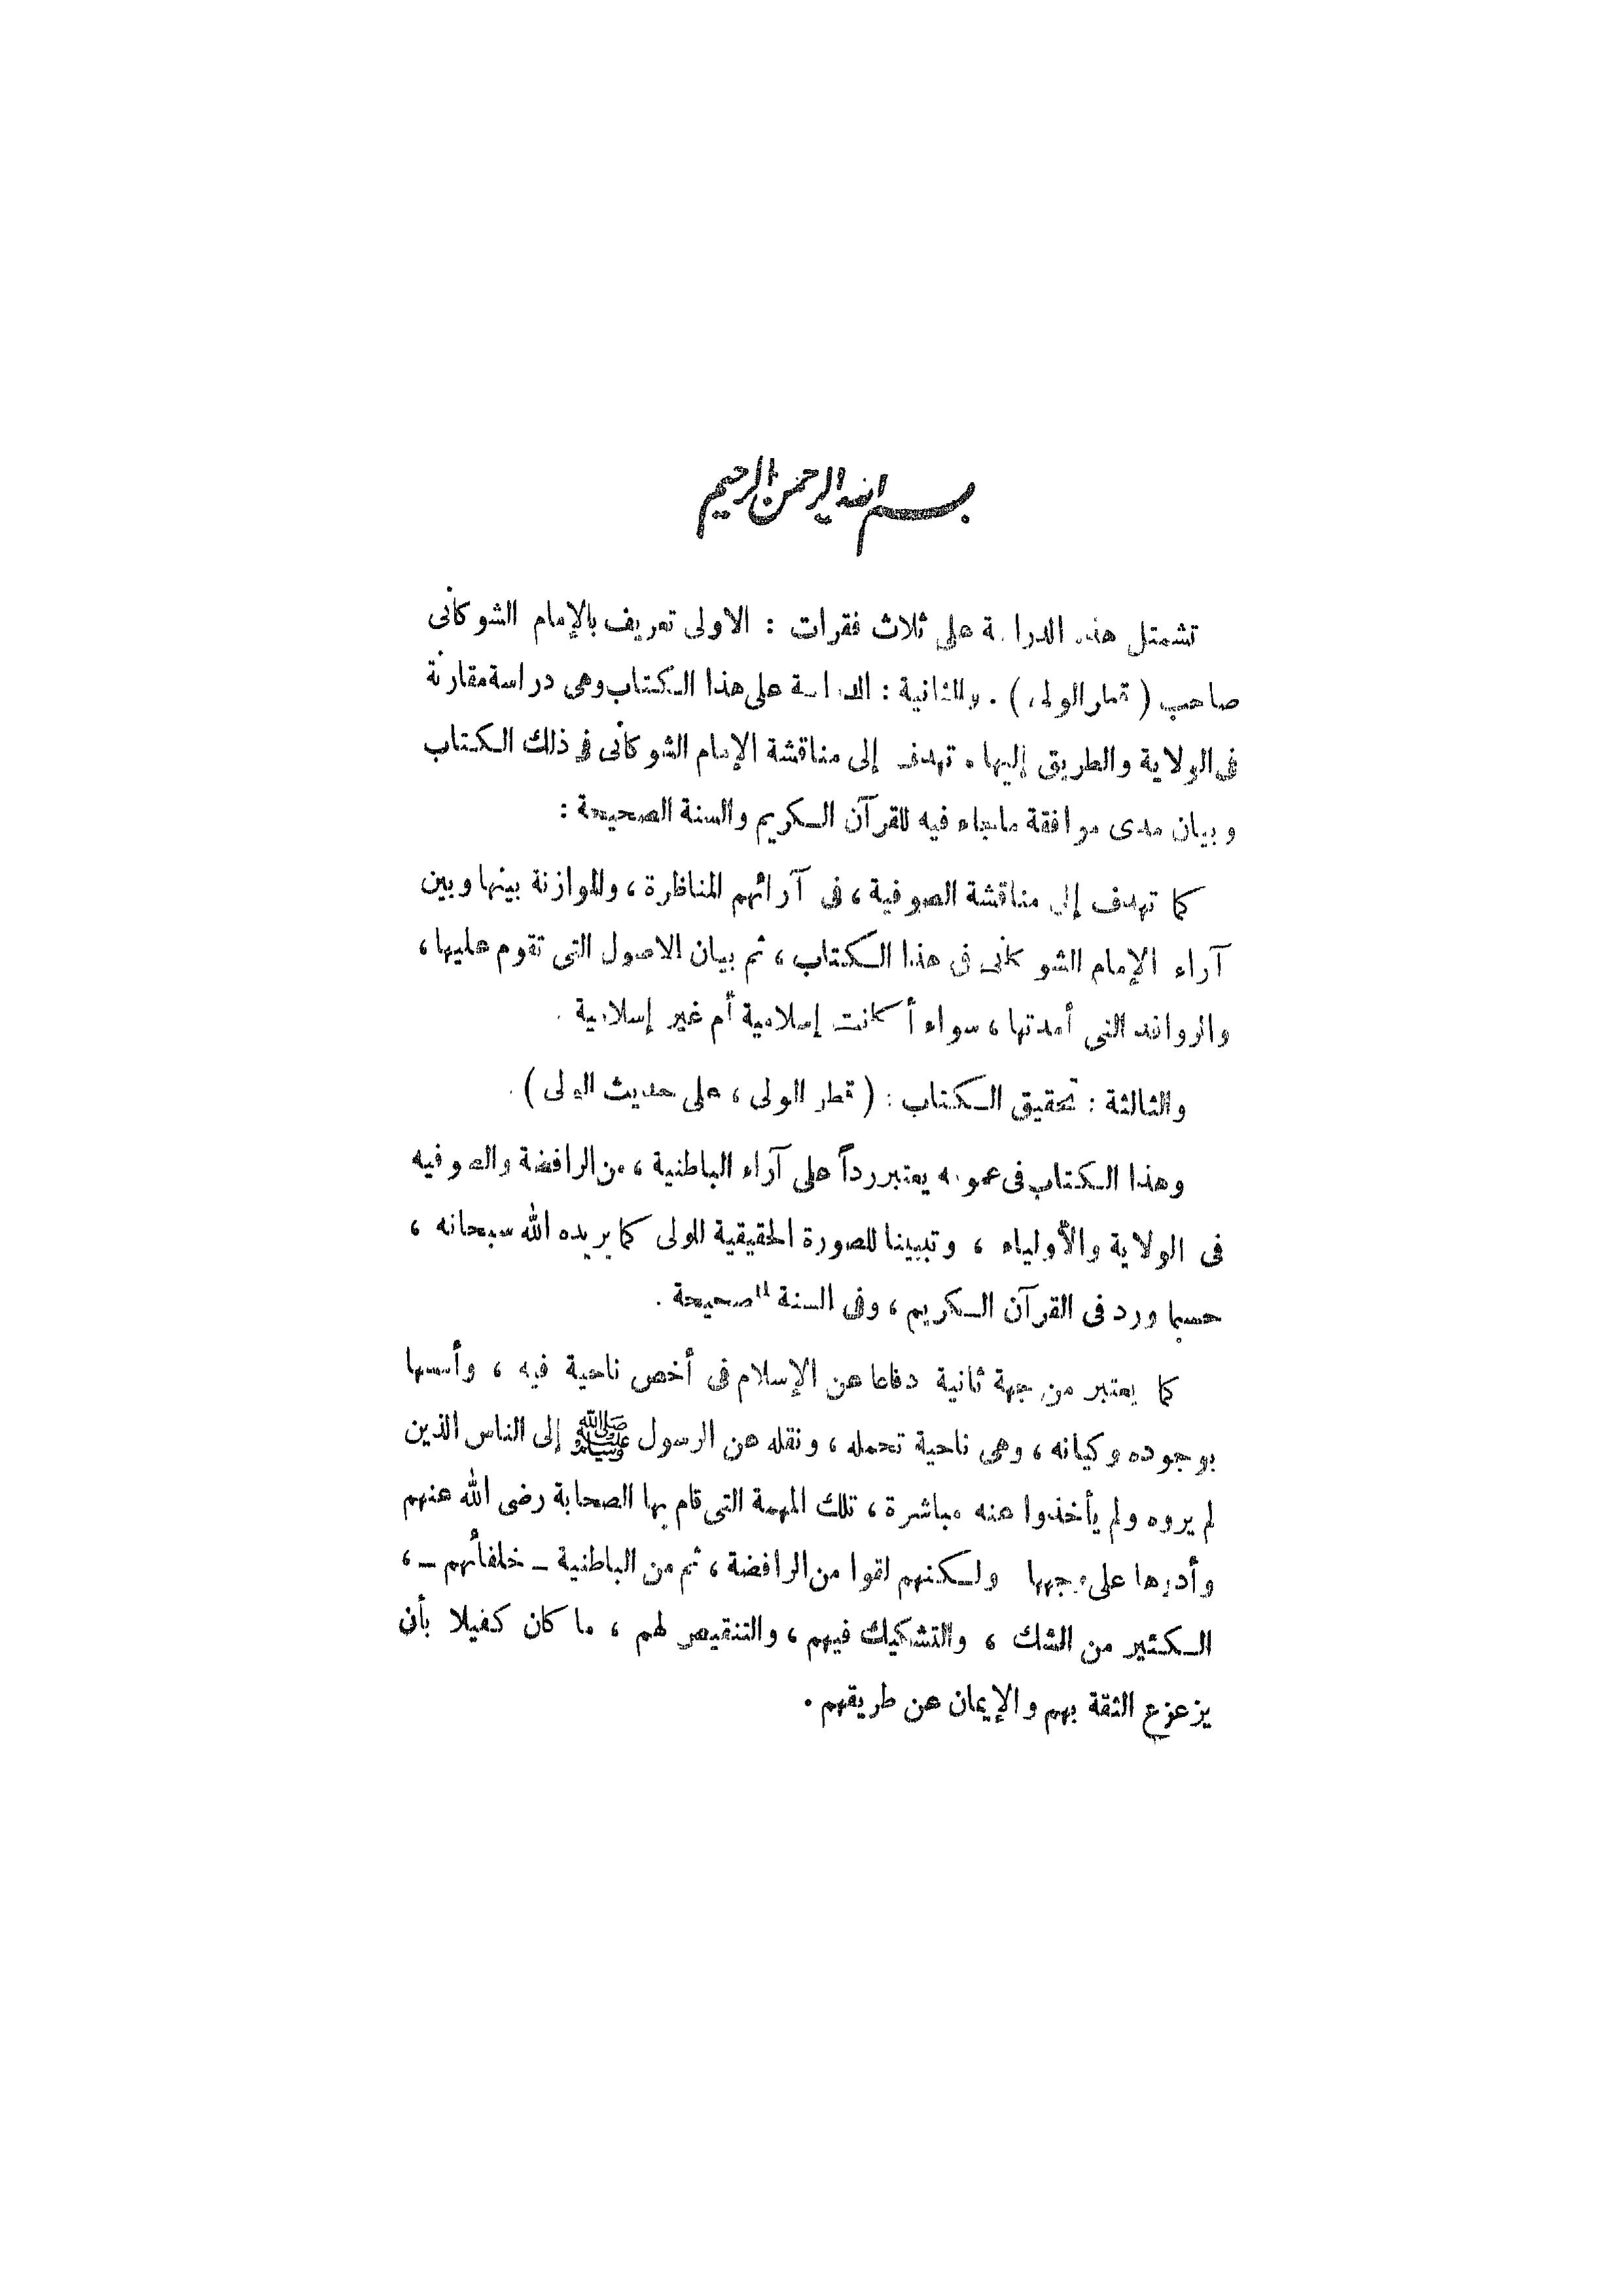 بسم الله الرحمن الرحيم
تشمتل هذه الدراسة على ثلاث فقرات : الاولى تعريف بالإمام الشوكانى
صاحب ( قطر الولى ) . والثانية : الدراسة على هذا الكتاب وهى دراسة مقارنة
فى الولاية والطريق إليها . تهدف إلى مناقشة الإمام الشوكانى فى ذلك الكتاب
وبيان مدى موافقة ماجاء فيه للقرآن الكريم والسنة الصحيحة :
كما تهدف إلى مناقشة الصوفية ، فى آرائهم المناظرة ، والموازنة بينها وبين
آراء الإمام الشوكانى فى هذا الكتاب ، ثم بيان الاصول التى تقوم عليها ،
والروافد التى أمدتها ، سواء أكانت إسلامية أم غير إسلامية .
والثالثة : تحقيق الكتاب : ( قطر الولى ، على حديث الولى ) .
وهذا الكتاب فى عمومه يعتبر رداً على آراء الباطنية ، من الرافضة والصوفيه
فى الولاية والأولياء ، وتبيينا للصورة الحقيقية للولى كما يريده الله سبحانه ،
حسبما ورد فى القرآن الكريم ، وفى السنة الصحيحة .
كما يعتبر من جهة ثانية دفاعا عن الإسلام فى أخص ناحية فيه ، وأمسها
بوجوده وكيانه ، وهى ناحية تحمله ، ونقله عن الرسول ﷺ إلى الناس الذين
لم يروه ولم يأخذوا عنه مباشرة ، تلك المهمة التى قام بها الصحابة رضى الله عنهم
وأدوها على وجهها ولكنهم لقوا من الرافضة ، ثم من الباطنية ــ خلفائهم ــ ،
الكثير من الشك ، والتشكيك فيهم ، والتنقيص لهم ، ما كان كفيلا بأن
يزعزع الثقة بهم والإيمان عن طريقهم .